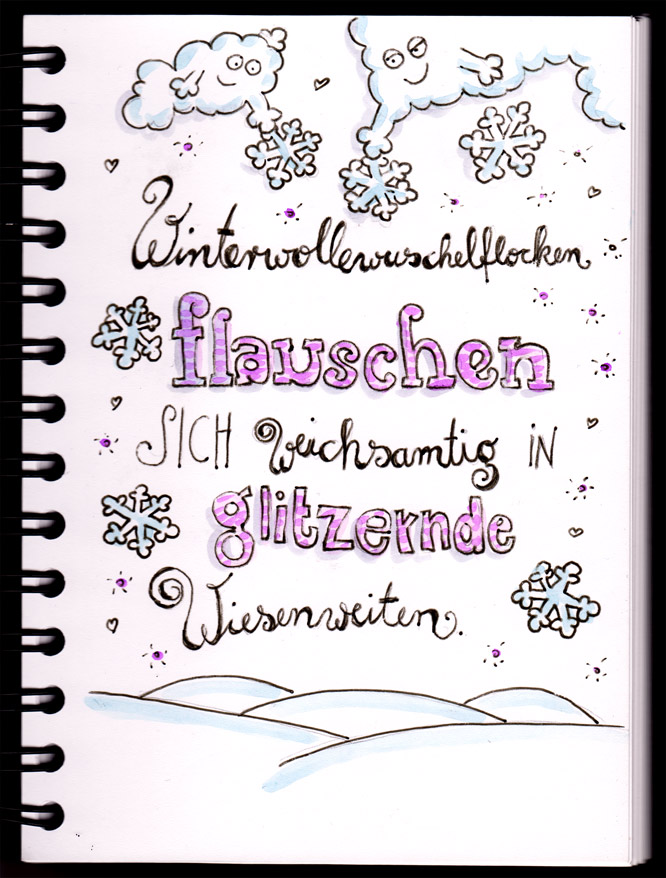 Winterwollewuschelflocken
flauschen
SICH weichsamtig IN
glitzernde
Wiesenweiten.